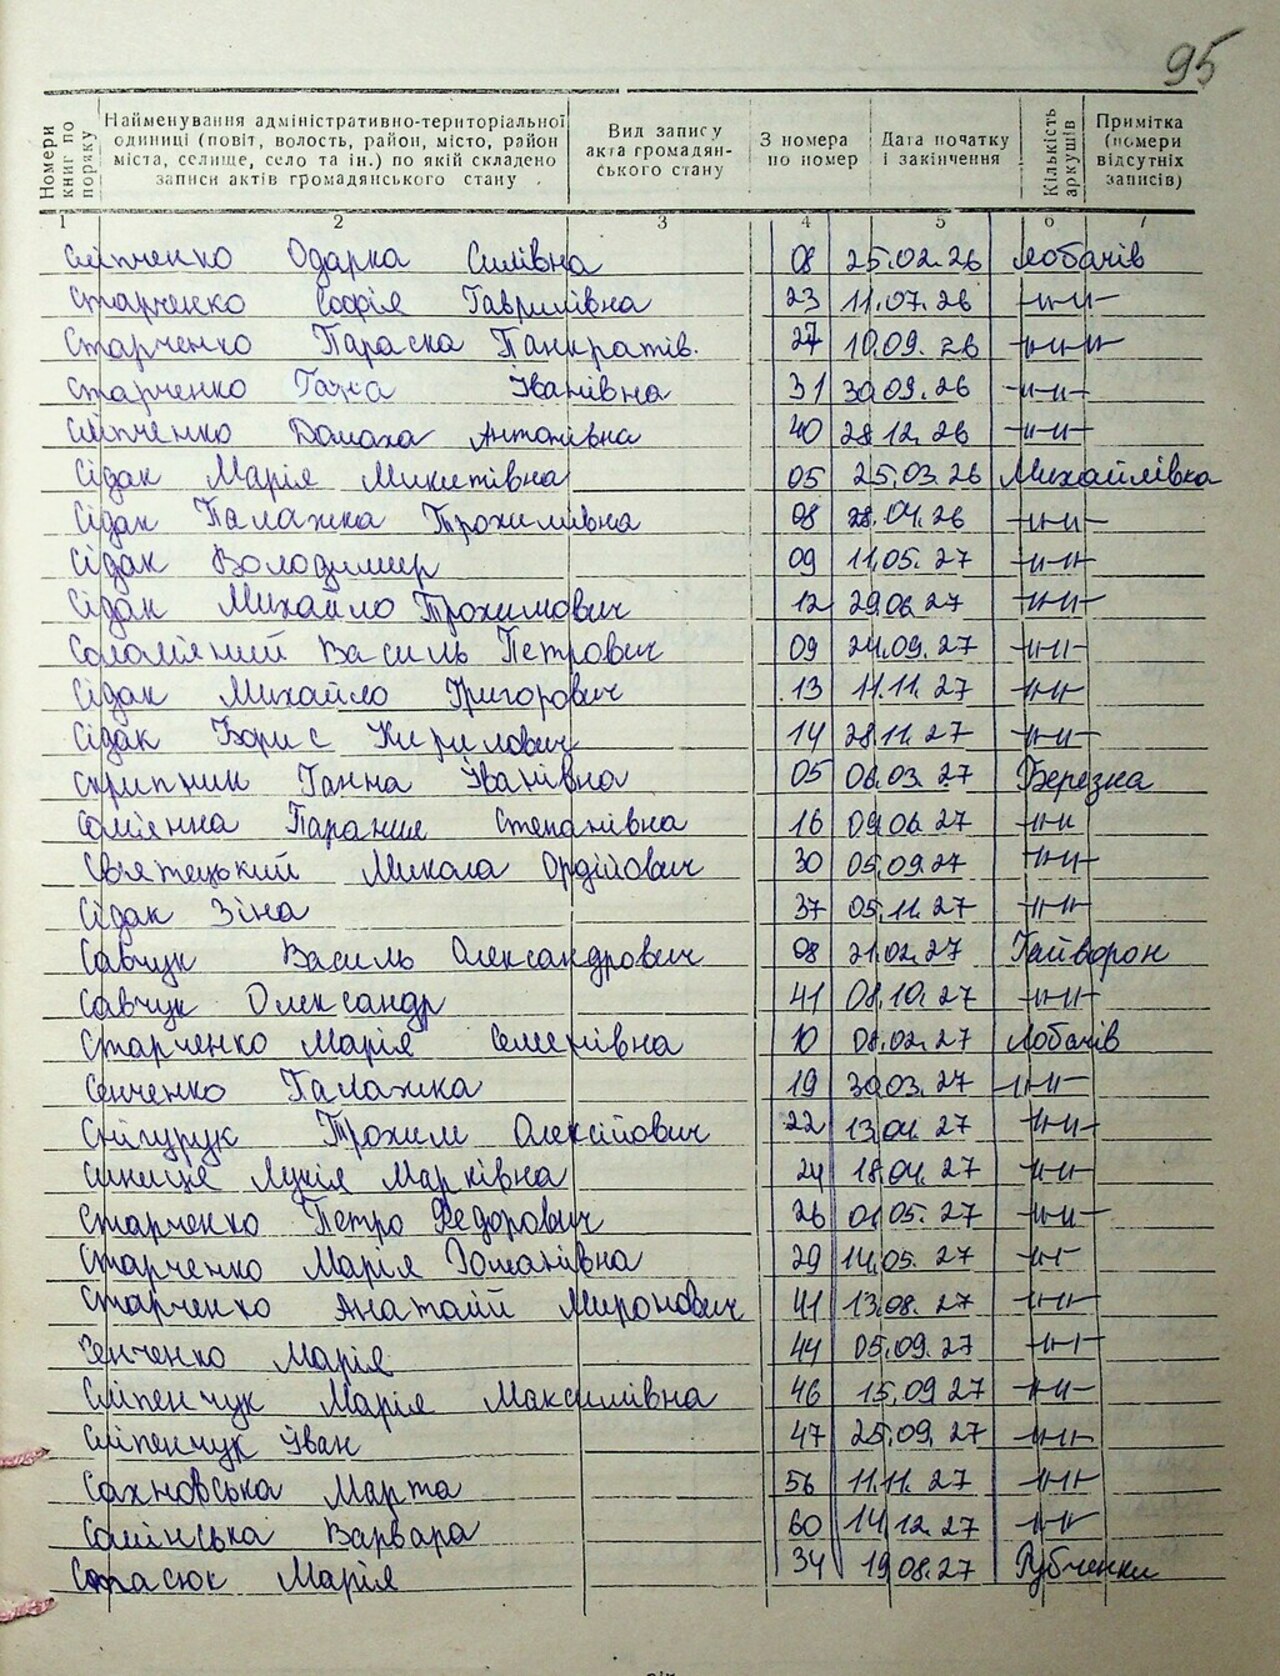 95
Номери книг по поряку
Найменування адміністративно-територіальної одиниці (повіт, волость, район, місто, район міста, селище, село та ін.) по якій складено записи актів громадянського стану
Вид запису акта громадян-ського стану
З номера по номер
Дата початку і закінчення
Кількість аркушів
Примітка (номери відсутніх записів)
1 2 3 4 5 6 7
Сліпченко Одарка Силівна 08 25.02.26 Лобачів
Старченко Софія Гаврилівна 23 11.07.26 -//-//-
Старченко Параска Панкратів. 27 10.09.26 -//-//-
Старченко Гана Іванівна 31 30.09.26 -//-//-
Сліпченко Домаха Антонівна 40 28.12.26 -//-//-
Сідак Марія Микитівна 05 25.03.26 Михайлівка
Сідак Палажка Трохимівна 08 28.04.26 -//-//-
Сідак Володимир 09 11.05.27 -//-//-
Сідак Михайло Трохимович 12 29.06.27 -//-//-
Соломяний Василь Петрович 09 24.09.27 -//-//-
Сідак Михайло Григорович 13 11.11.27 -//-//-
Сідак Борис Кирилович 14 28.11.27 -//-//-
Скрипник Ганна Іванівна 05 06.03.27 Березна
Сомʼянна Парания Степанівна 16 09.06.27 -//-//-
Святецький Микола Ордійович 30 05.09.27 -//-//-
Сідак Зіна 37 05.11.27 -//-//-
Савчук Василь Олександрович 08 21.02.27 Гайворон
Савчук Олександр 41 08.10.27 -//-//-
Старченко Марія Семенівна 10 08.02.27 Лобачів
Сенченко Палажка 19 30.03.27 -//-//-
Снігурук Трохим Олексійович 22 13.04.27 -//-//-
Синиця Лукія Марківна 24 18.04.27 -//-//-
Старченко Петро Федорович 26 01.05.27 -//-//-
Старченко Марія Романівна 29 14.05.27 -//-//-
Старченко Анатолій Миронович 41 13.08.27 -//-//-
Сенченко Марія 44 05.09.27 -//-//-
Сліпенчук Марія Максимівна 46 15.09.27 -//-//-
Сліпенчук Іван 47 25.09.27 -//-//-
Сахновська Марта 56 11.11.27 -//-//-
Солінська Варвара 60 14.12.27 -//-//-
Стасюк Марія 34 19.08.27 Рубченки